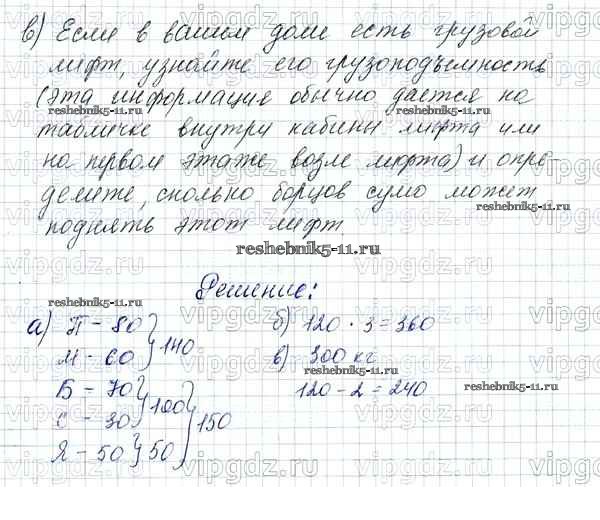 в) Если в вашем доме есть грузовой
лифт, узнайте его грузоподъемность
(эта информация обычно дается на
табличке внутри кабины лифта или
на первом этаже возле лифта) и опре-
делите, сколько борцов сумо может
поднять этот лифт
reshebnik5-11.ru
Решение:
а) П - 80
М - 60
} 140
Б - 70
С - 30
} 100
Я - 50 } 50
} 150
б) 120 · 3 = 360
в) 300 кг
120 - 2 = 240
reshebnik5-11.ru
vipgdz.ru